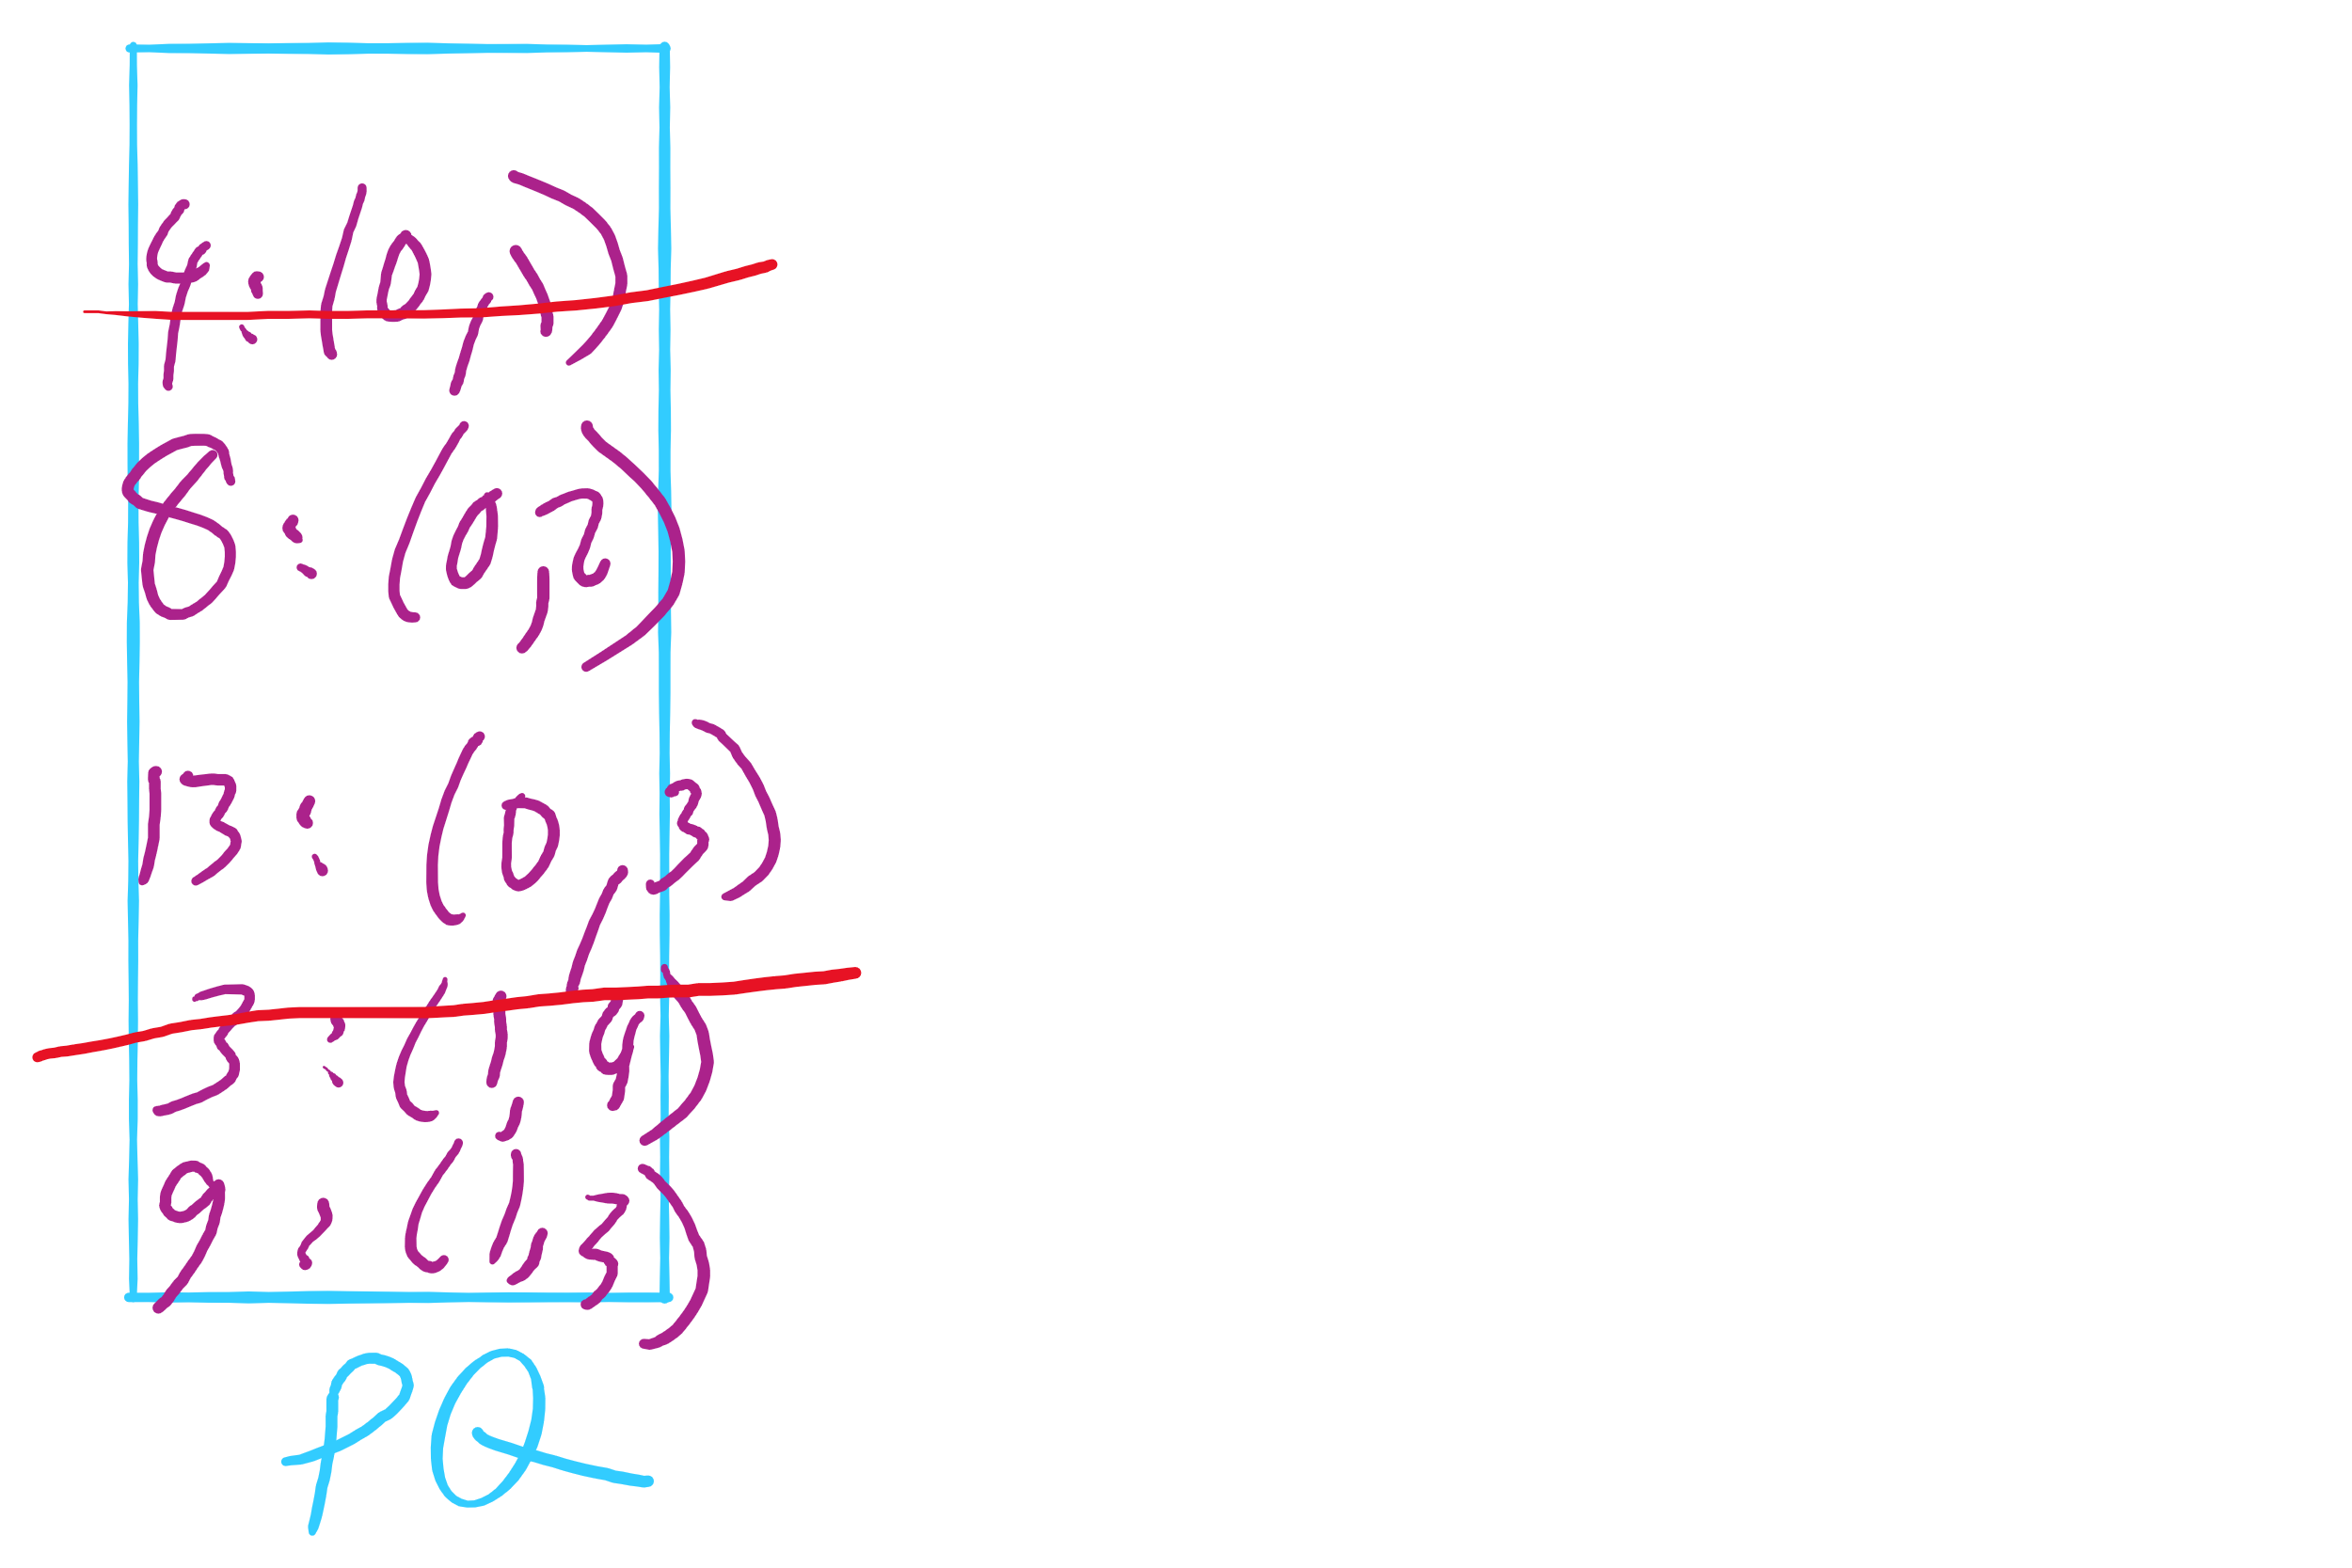 4 : (0, 1)
8 : (0, 2)
13 : (0, 3)
3 : (1, 9)
9 : (1, 3)
PQ